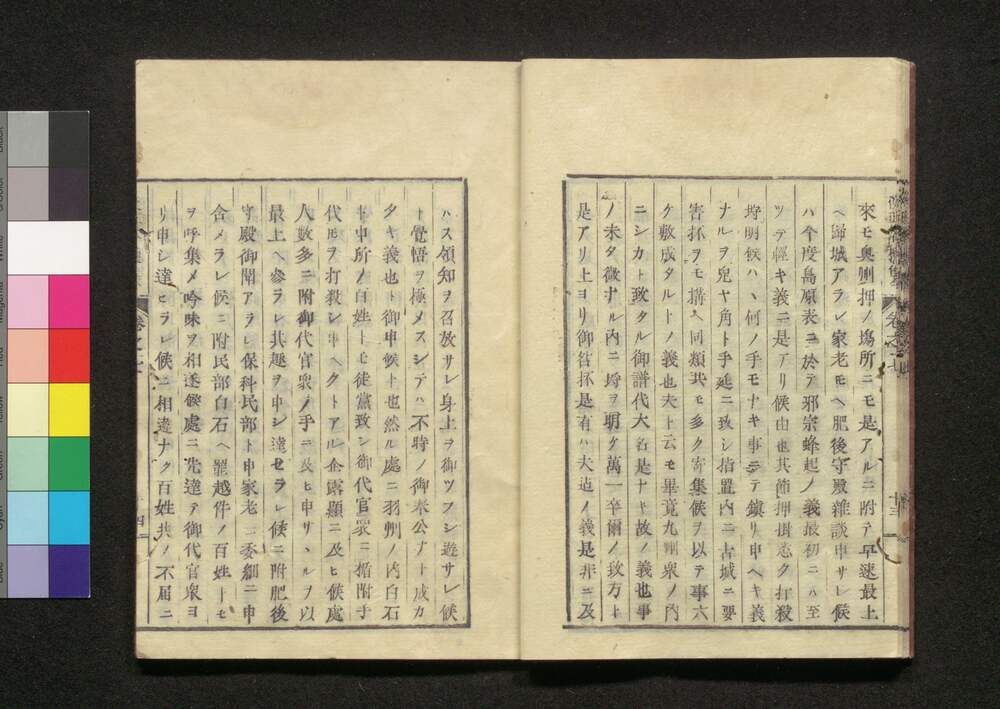 來モ奥州押ノ塲所ニモ是アルニ附テ早速最上
ヘ歸城アラレ家老モヘ肥後守殿雑談申サレ候
ハ今度島原表ニ於テ邪宗蜂起ノ義最初ニハ至
ツテ輕キ義ニ是アリ候由也其節押揖悉ク打殺
埒明候ハヽ何ノ手モナキ事ニテ鎮リ申ヘキ義
ナルヲ兎ヤ角ト手延ニ致シ指置内ニ古城ニ要
害抔ヲモ搆ヘ同類共モ多ク寄集候ヲ以テ事六
ケ敷成タルトノ義也夫ト云モ畢竟九州衆ノ内
ニシカト致タル御譜代大名是ナキ故ノ義也事
ノ未タ微ナル内ニ埒ヲ明ケ萬一卒爾ノ致方ト
是アリ上ヨリ御咎抔是有ハ夫迠ノ義是非ニ及
ハス領知ヲ召放サレ身上ヲ御ツフシ遊サレ候
ト覺悟ヲ極メスシテハ不時ノ御奉公ナト成カ
タキ義也ト御申候ト也然ル處ニ羽州ノ内白石
ト申所ノ百姓トモ徒黨致シ御代官衆ニ楯附手
代共ヲ打殺シ申ヘクトアル企露顯ニ及ヒ候處
人數多ニ附御代官衆ノ手ニ及ヒ申サヽルヲ以
最上ヘ參ラレ其趣ヲ申シ達セラレ候ニ附肥後
守殿御聞アラレ保科民部ト申家老ニ委細ニ申
含メラレ候ニ附民部白石ヘ罷越件ノ百姓トモ
ヲ呼集メ吟味ヲ相遂候處ニ先達テ御代官衆ヨ
リ申シ達セラレ候ニ相違ナク百姓共ノ不届ニ
十三
四